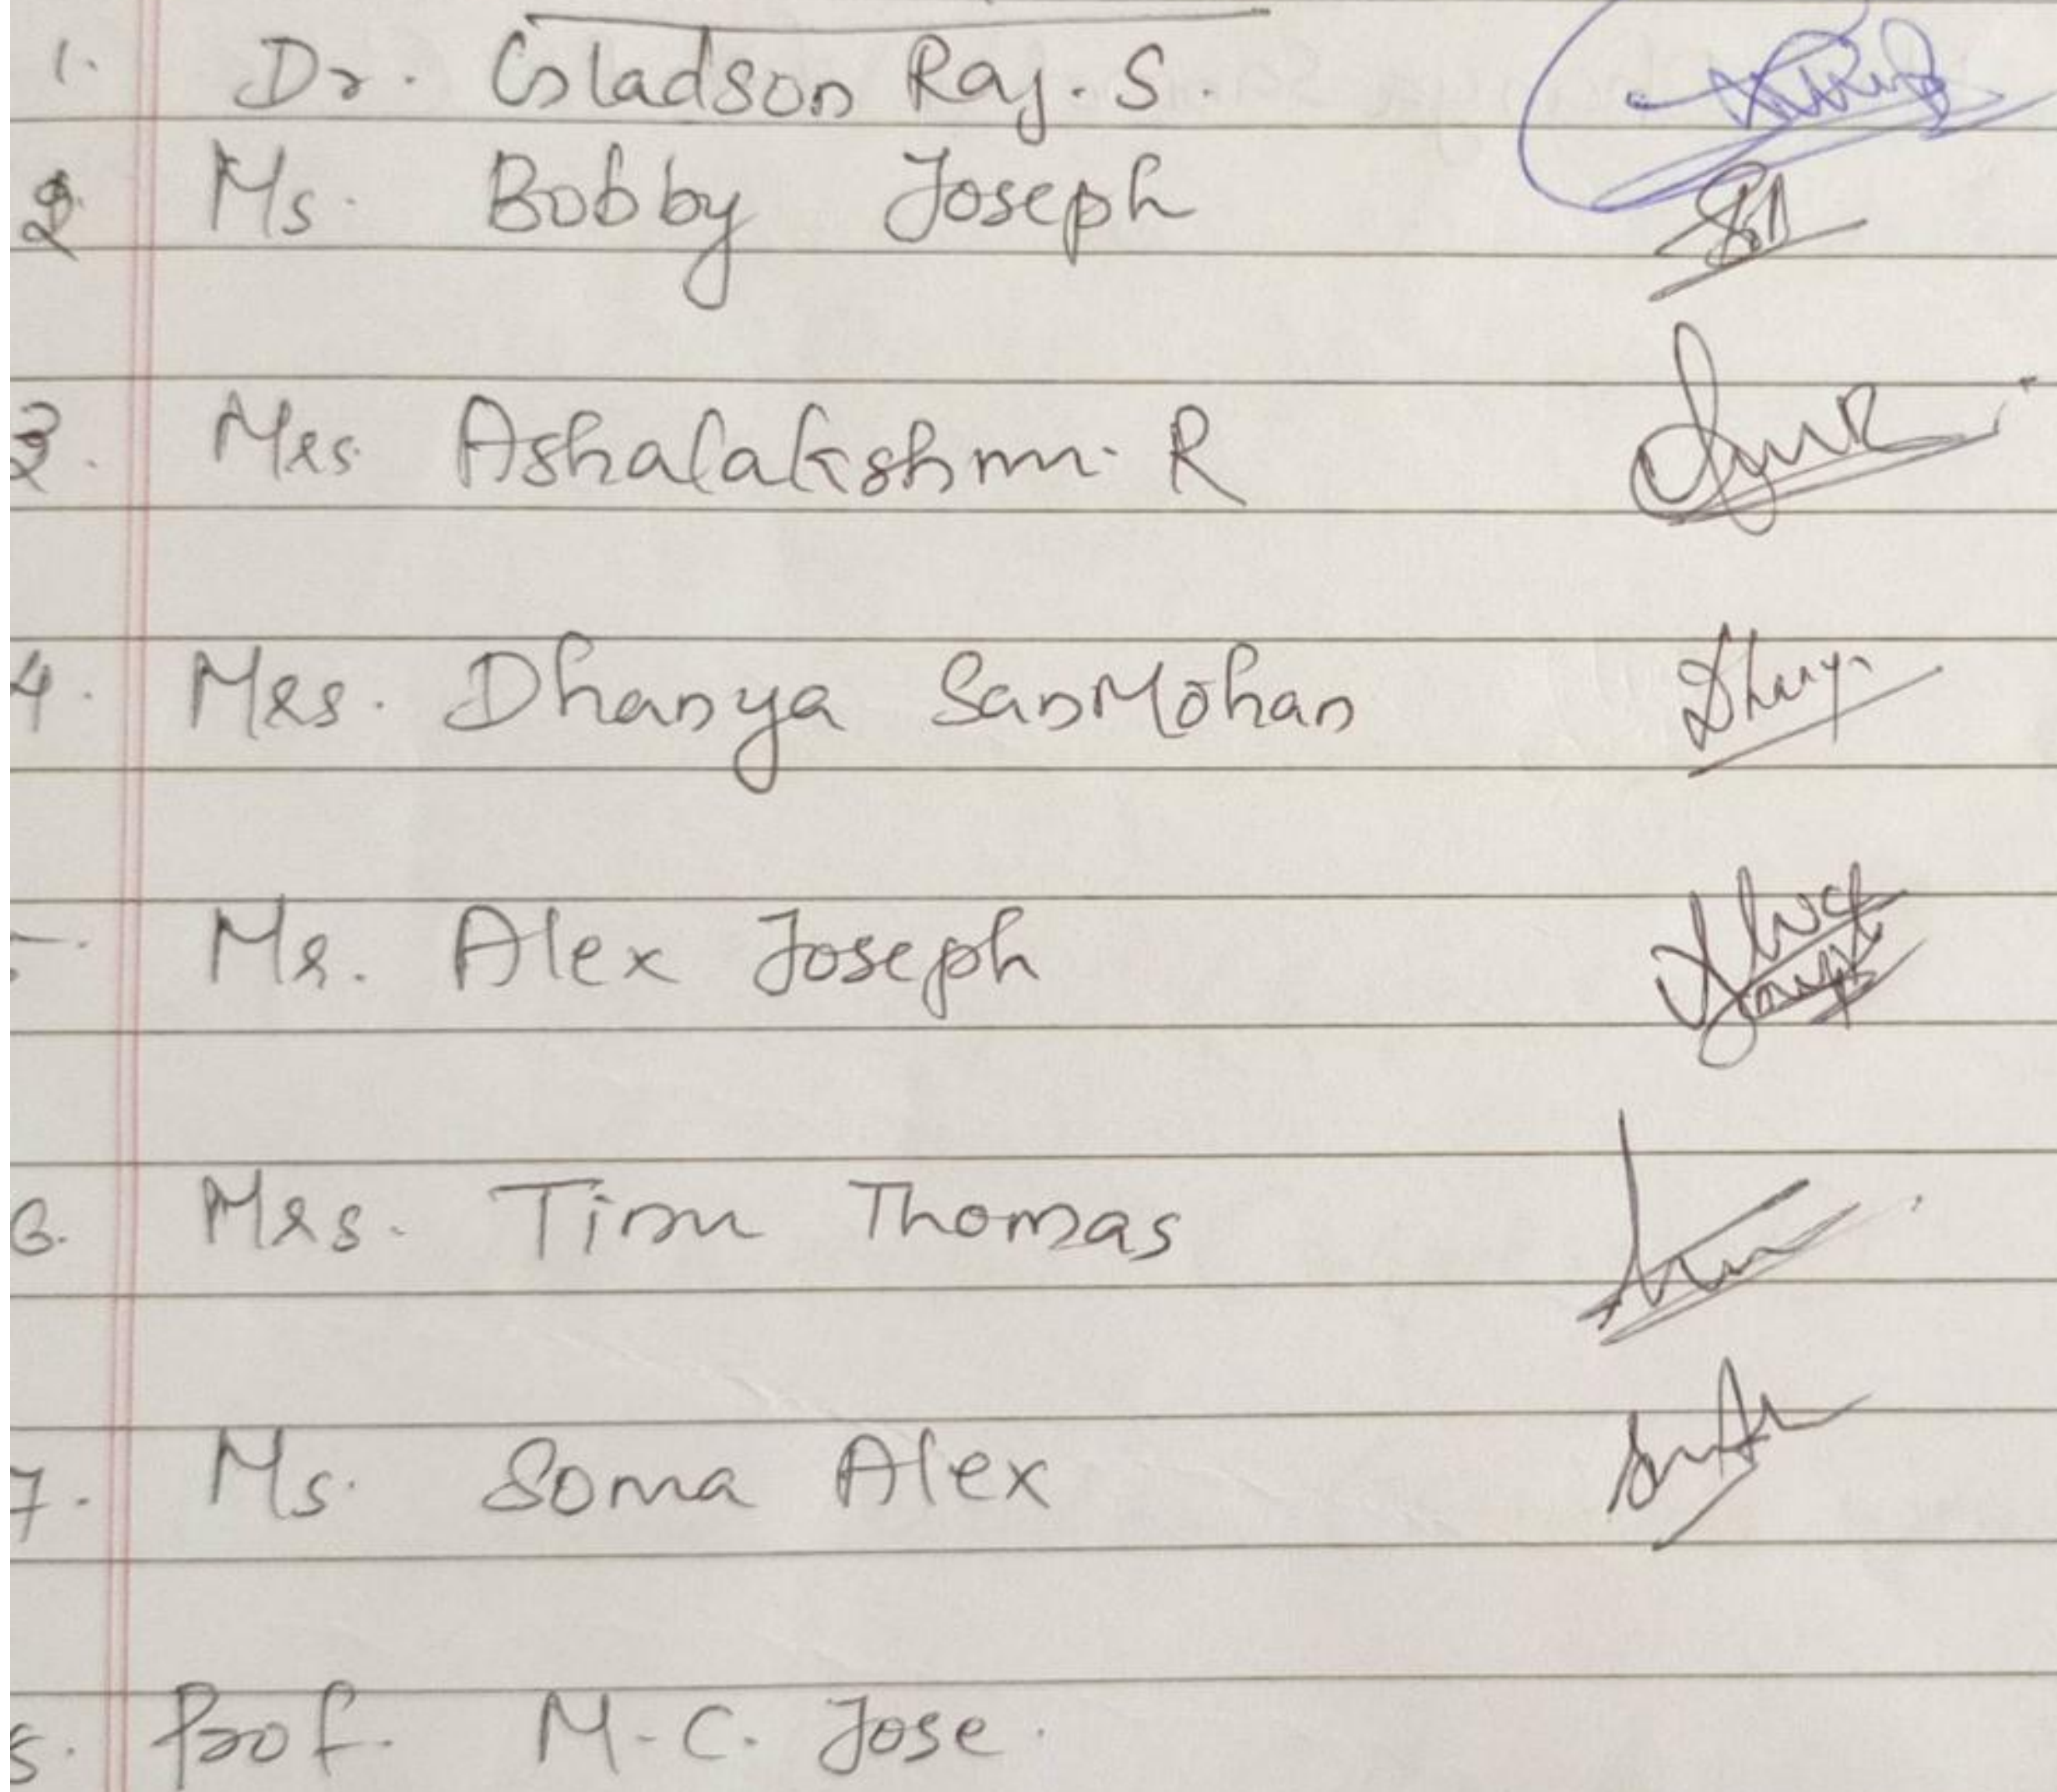 1. Dr. Gladson Raj. S.
2. Ms. Bobby Joseph
3. Mrs Ashalakshmi. R
4. Mrs. Dhanya SanMohan Dhanya
Mr. Alex Joseph Alex Joseph
6. Mrs. Tinu Thomas
7. Ms. Soma Alex
Prof. M. C. Jose.